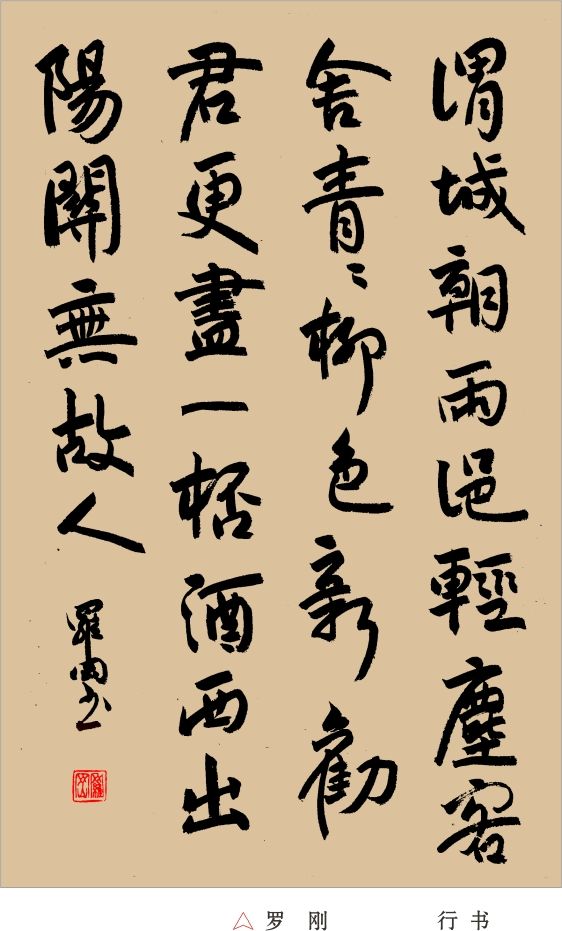 渭城朝雨浥輕塵客
舍青〻柳色新勸
君更盡一桮酒西出
陽關無故人
羅岡书
罗刚 行书